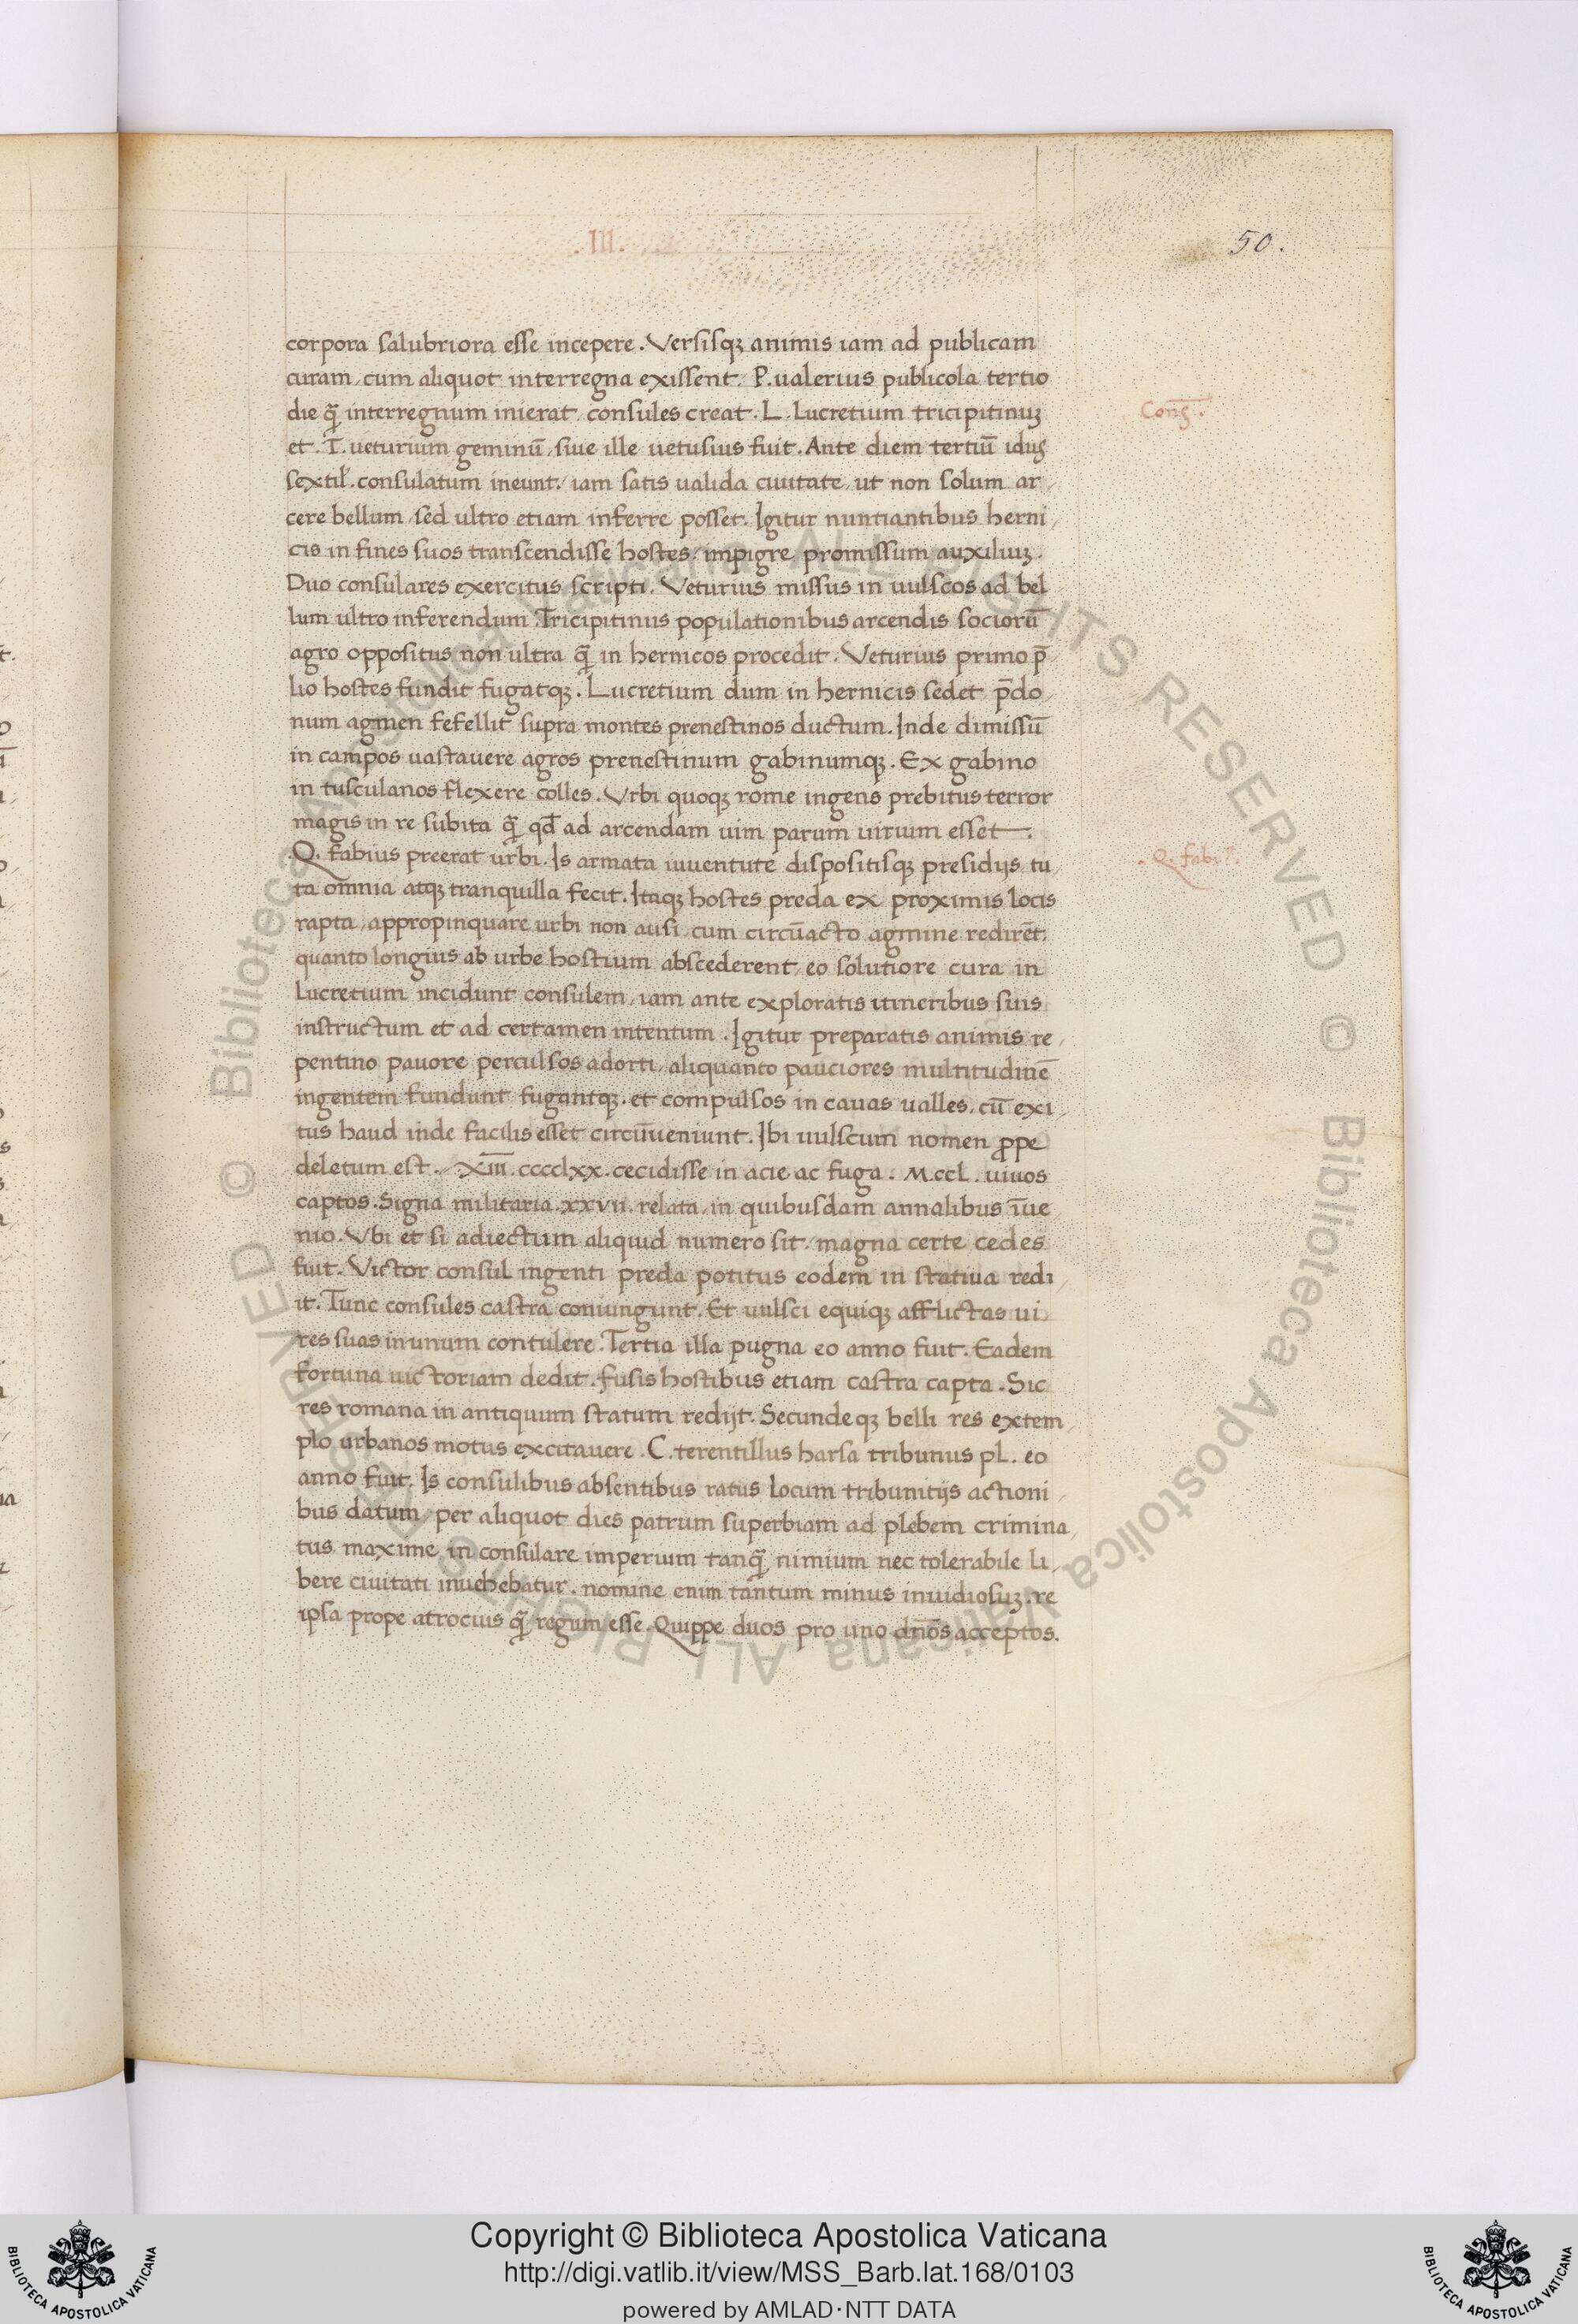 .III.
50.
corpora salubriora esse incepere. Versisqꝫ animis iam ad publicam
curam, cum aliquot interregna exissent. P. ualerius publicola tertio
die q̃ interregnum inierat, consules creat. L. Lucretium tricipitinuꝫ
Conſ.
et. T. ueturium geminū, siue ille uetusius fuit. Ante diem tertiū idus
sextil. consulatum ineunt, iam satis ualida ciuitate, ut non solum ar,
cere bellum, sed ultro etiam inferre posset. Igitur nuntiantibus herni,
cis in fines suos transcendisse hostes, impigre promissum auxiliuꝫ.
Duo consulares exercitus scripti. Veturius missus in uulscos ad bel
lum ultro inferendum. Tricipitinus populationibus arcendis sociorū
agro oppositus non ultra q̃ in hernicos procedit. Veturius primo p̄
lio hostes fundit fugatqꝫ. Lucretium dum in hernicis sedet p̄do,
num agmen fefellit supra montes prenestinos ductum. Inde dimissū
in campos uastauere agros prenestinum gabinumqꝫ. Ex gabino
in tusculanos flexere colles. Vrbi quoqꝫ rome ingens prebitus terror
magis in re subita q̃ qđ ad arcendam uim parum uirium esset.
.Q. fabius preerat urbi. Is armata iuuentute dispositisqꝫ presidijs tu,
.Q. fabi⁹.
ta omnia atqꝫ tranquilla fecit. Itaqꝫ hostes preda ex proximis locis
rapta, appropinquare urbi non ausi, cum circūacto agmine redirēt,
quanto longius ab urbe hostium abscederent, eo solutiore cura in
Lucretium incidunt consulem, iam ante exploratis itineribus suis
instructum et ad certamen intentum. Igitur preparatis animis re,
pentino pauore perculsos adorti, aliquanto pauciores multitudinē
ingentem fundunt fugantqꝫ. et compulsos in cauas ualles, cū exi,
tus haud inde facilis esset circūueniunt. Ibi uulscum nomen ꝓpe
deletum est. X̅I̅I̅I̅.cccclxx. cecidisse in acie ac fuga. M.ccL. uiuos
captos. Signa militaria. xxvii. relata, in quibusdam annalibus īue
nio. Vbi et si adiectum aliquid numero sit, magna certe cedes
fuit. Victor consul ingenti preda potitus eodem in statiua redi,
it. Tunc consules castra coniungunt. Et uulsci equiqꝫ afflictas ui,
res suas in unum contulere. Tertia illa pugna eo anno fuit. Eadem
fortuna uictoriam dedit. fusis hostibus etiam castra capta. Sic
res romana in antiquum statum redijt. Secundeqꝫ belli res extem,
plo urbanos motus excitauere. C. terentillus harsa tribunus pL. eo
anno fuit. Is consulibus absentibus ratus locum tribunitijs actioni,
bus datum, per aliquot dies patrum superbiam ad plebem crimina,
tus, maxime in consulare imperium tanq̃ nimium nec tolerabile li,
bere ciuitati inuehebatur. nomine enim tantum minus inuidiosuꝫ. re
ipsa prope atrocius q̃ regum esse. Quippe duos pro uno dnōs acceptos.
© Biblioteca Apostolica Vaticana ALL RIGHTS RESERVED © Biblioteca Apostolica Vaticana ALL RIGHTS RESERVED
Copyright © Biblioteca Apostolica Vaticana
http://digi.vatlib.it/view/MSS_Barb.lat.168/0103
powered by AMLAD·NTT DATA
BIBLIOTECA APOSTOLICA VATICANA
BIBLIOTECA APOSTOLICA VATICANA